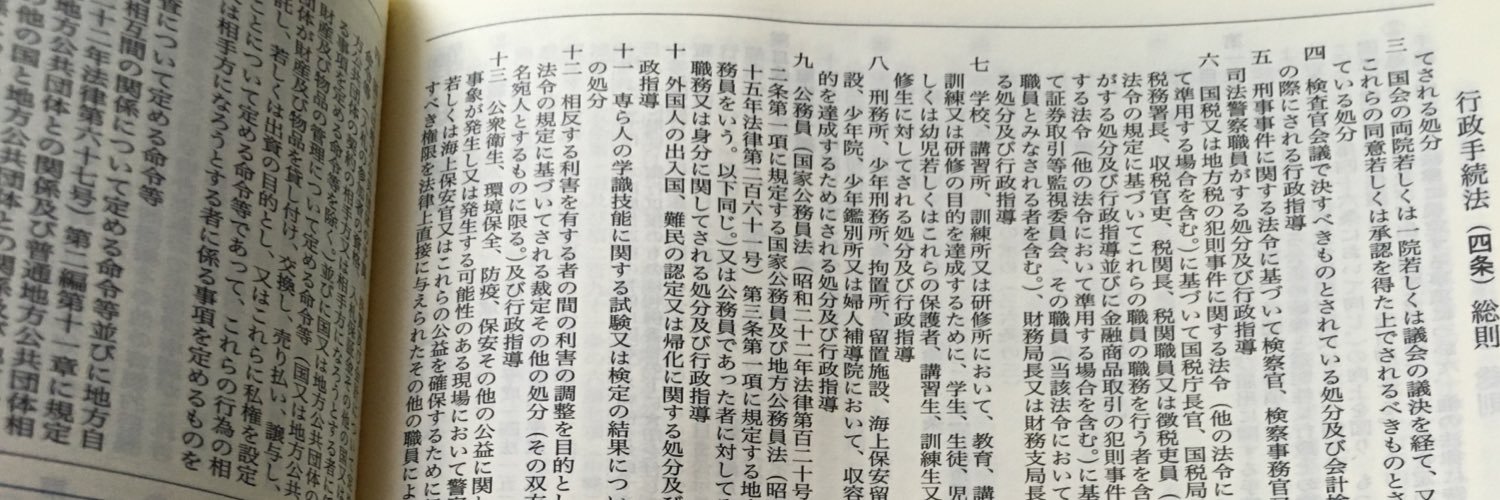 行政手続法（四条）総則
てされる処分
三　国会の両院若しくは一院若しくは議会の議決を経て、又
これらの同意若しくは承認を得た上でされるべきものとさ
ている処分
四　検査官会議で決すべきものとされている処分及び会計検
の際にされる行政指導
五　刑事事件に関する法令に基づいて検察官、検察事務官
司法警察職員がする処分及び行政指導
六　国税又は地方税の犯則事件に関する法令（他の法令に
て準用する場合を含む。）に基づいて国税庁長官、国税局
税務署長、収税官吏、税関長、税関職員又は徴税吏員（
法令の規定に基づいてこれらの職員の職務を行う者を含
がする処分及び行政指導並びに金融商品取引の犯則事件
する法令（他の法令において準用する場合を含む。）に基
て証券取引等監視委員会、その職員（当該法令において
職員とみなされる者を含む。）、財務局長又は財務支局長
る処分及び行政指導
七　学校、講習所、訓練所又は研修所において、教育、講
訓練又は研修の目的を達成するために、学生、生徒、児
しくは幼児若しくはこれらの保護者、講習生、訓練生又
修生に対してされる処分及び行政指導
八　刑務所、少年刑務所、拘置所、留置施設、海上保安留
設、少年院、少年鑑別所又は婦人補導院において、収容
的を達成するためにされる処分及び行政指導
九　公務員（国家公務員法（昭和二十二年法律第百二十号
二条第一項に規定する国家公務員及び地方公務員法（昭
十五年法律第二百六十一号）第三条第一項に規定する地
務員をいう。以下同じ。）又は公務員であった者に対して
職務又は身分に関してされる処分及び行政指導
十　外国人の出入国、難民の認定又は帰化に関する処分及び
政指導
十一　専ら人の学識技能に関する試験又は検定の結果につい
の処分
十二　相反する利害を有する者の間の利害の調整を目的とし
法令の規定に基づいてされる裁定その他の処分（その双方
名宛人とするものに限る。）及び行政指導
十三　公衆衛生、環境保全、防疫、保安その他の公益に関
事象が発生し又は発生する可能性のある現場において警察
若しくは海上保安官又はこれらの公益を確保するために
すべき権限を法律上直接に与えられたその他の職員によ
財産及び物品の管理について定める命令等（国又は地方公共
団体が財産及び物品を貸し付け、交換し、売り払い、譲与し、
託し、若しくは出資の目的とし、又はこれらに私権を設定
ことについて定める命令等であって、これらの行為の相
は相手方になろうとする者に係る事項を定めるものを
査について定める命令等
相互間の関係について定める命令等並びに地方自
十二年法律第六十七号）第二編第十一章に規定
地方公共団体との関係及び普通地方公共団体相
の他の国と地方公共団体との関係及び